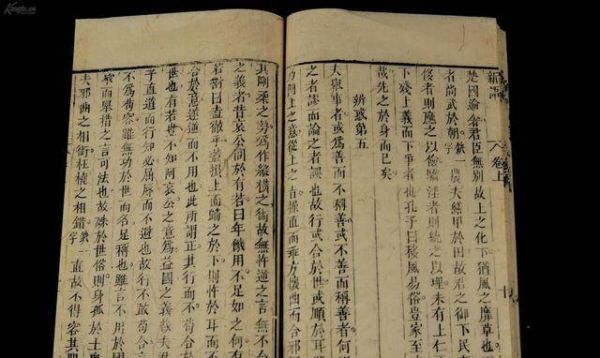 新語 卷上
楚國淪奢君臣無別故上之化下猶風之靡草也
者尚武於朝缺一字農夫繕甲於田故君之御下民
侈者則應之以儉驕淫者則統之以理未有上仁
下殘上義而下爭者也孔子曰移風易俗豈家至
哉先之於身而已矣
辨惑第五
夫舉事者或爲善而不稱善或不善而稱善者何
之者謬而論之者誤也故行或合於世或順於耳
乃阿上之意從上之旨操直而乖方懷曲而合邪
其剛柔之勢爲作縱橫之術故無忤逆之言無不合
之義者昔哀公問於有若曰年饑用不足如之何有
若對曰盍徹乎蓋損上而歸之於下則忤於耳而不
合於意遂逆而不用也此所謂正其行而不苟合於
世也有若豈不知阿哀公之意爲益國之義哉夫君
子直道而行知必屈辱而不避也故行不敢苟合言
不爲苟容雖無功於世而名足稱也雖言不用於國
家而舉措之言可法也故殊於世俗則身孤於士
夫邪曲之相銜枉橈之相錯缺一字直故不得容其間